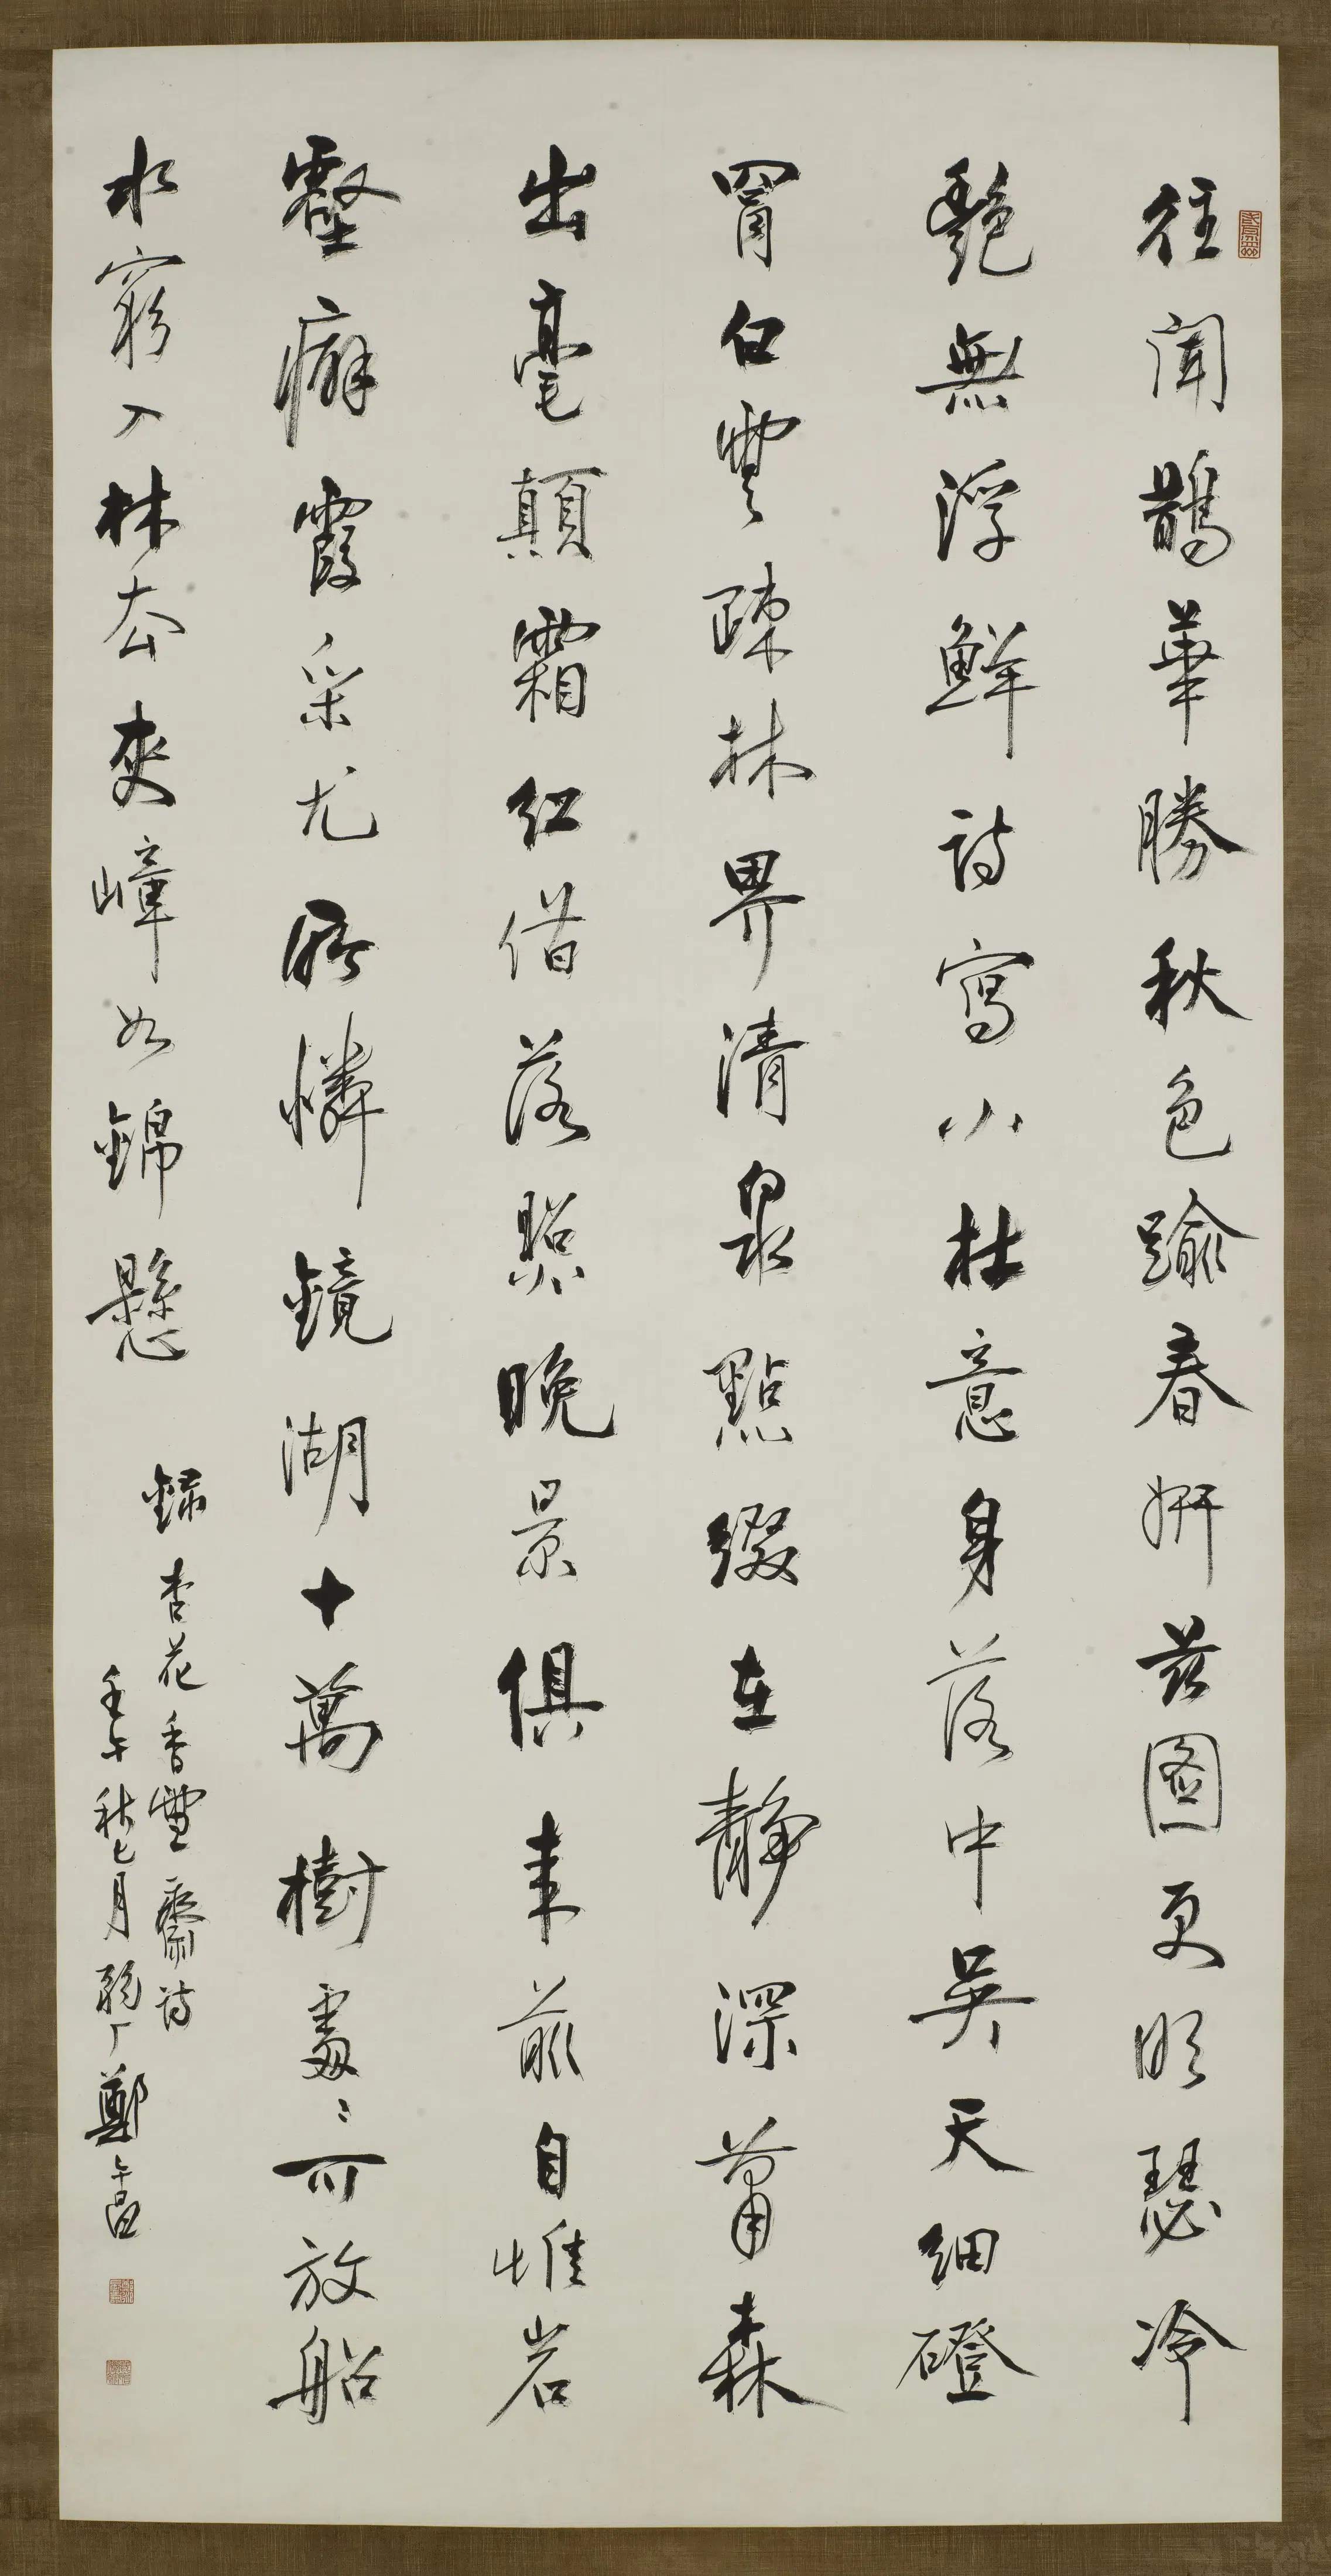 往聞鵲華勝秋色踰春妍茲圖更明瑟冷
艷無浮鮮詩寫小杜意身落中吳天細磴
罥白雲疎林界清泉點綴在靜深蕭森
出毫顛霜紅借落照晚景俱來前自惟岩
壑癖霞采尤所憐鏡湖十萬樹處〻可放船
水窮入林去夾嶂如錦懸
錄杏花香雪齋詩
壬午秋七月鄭午昌